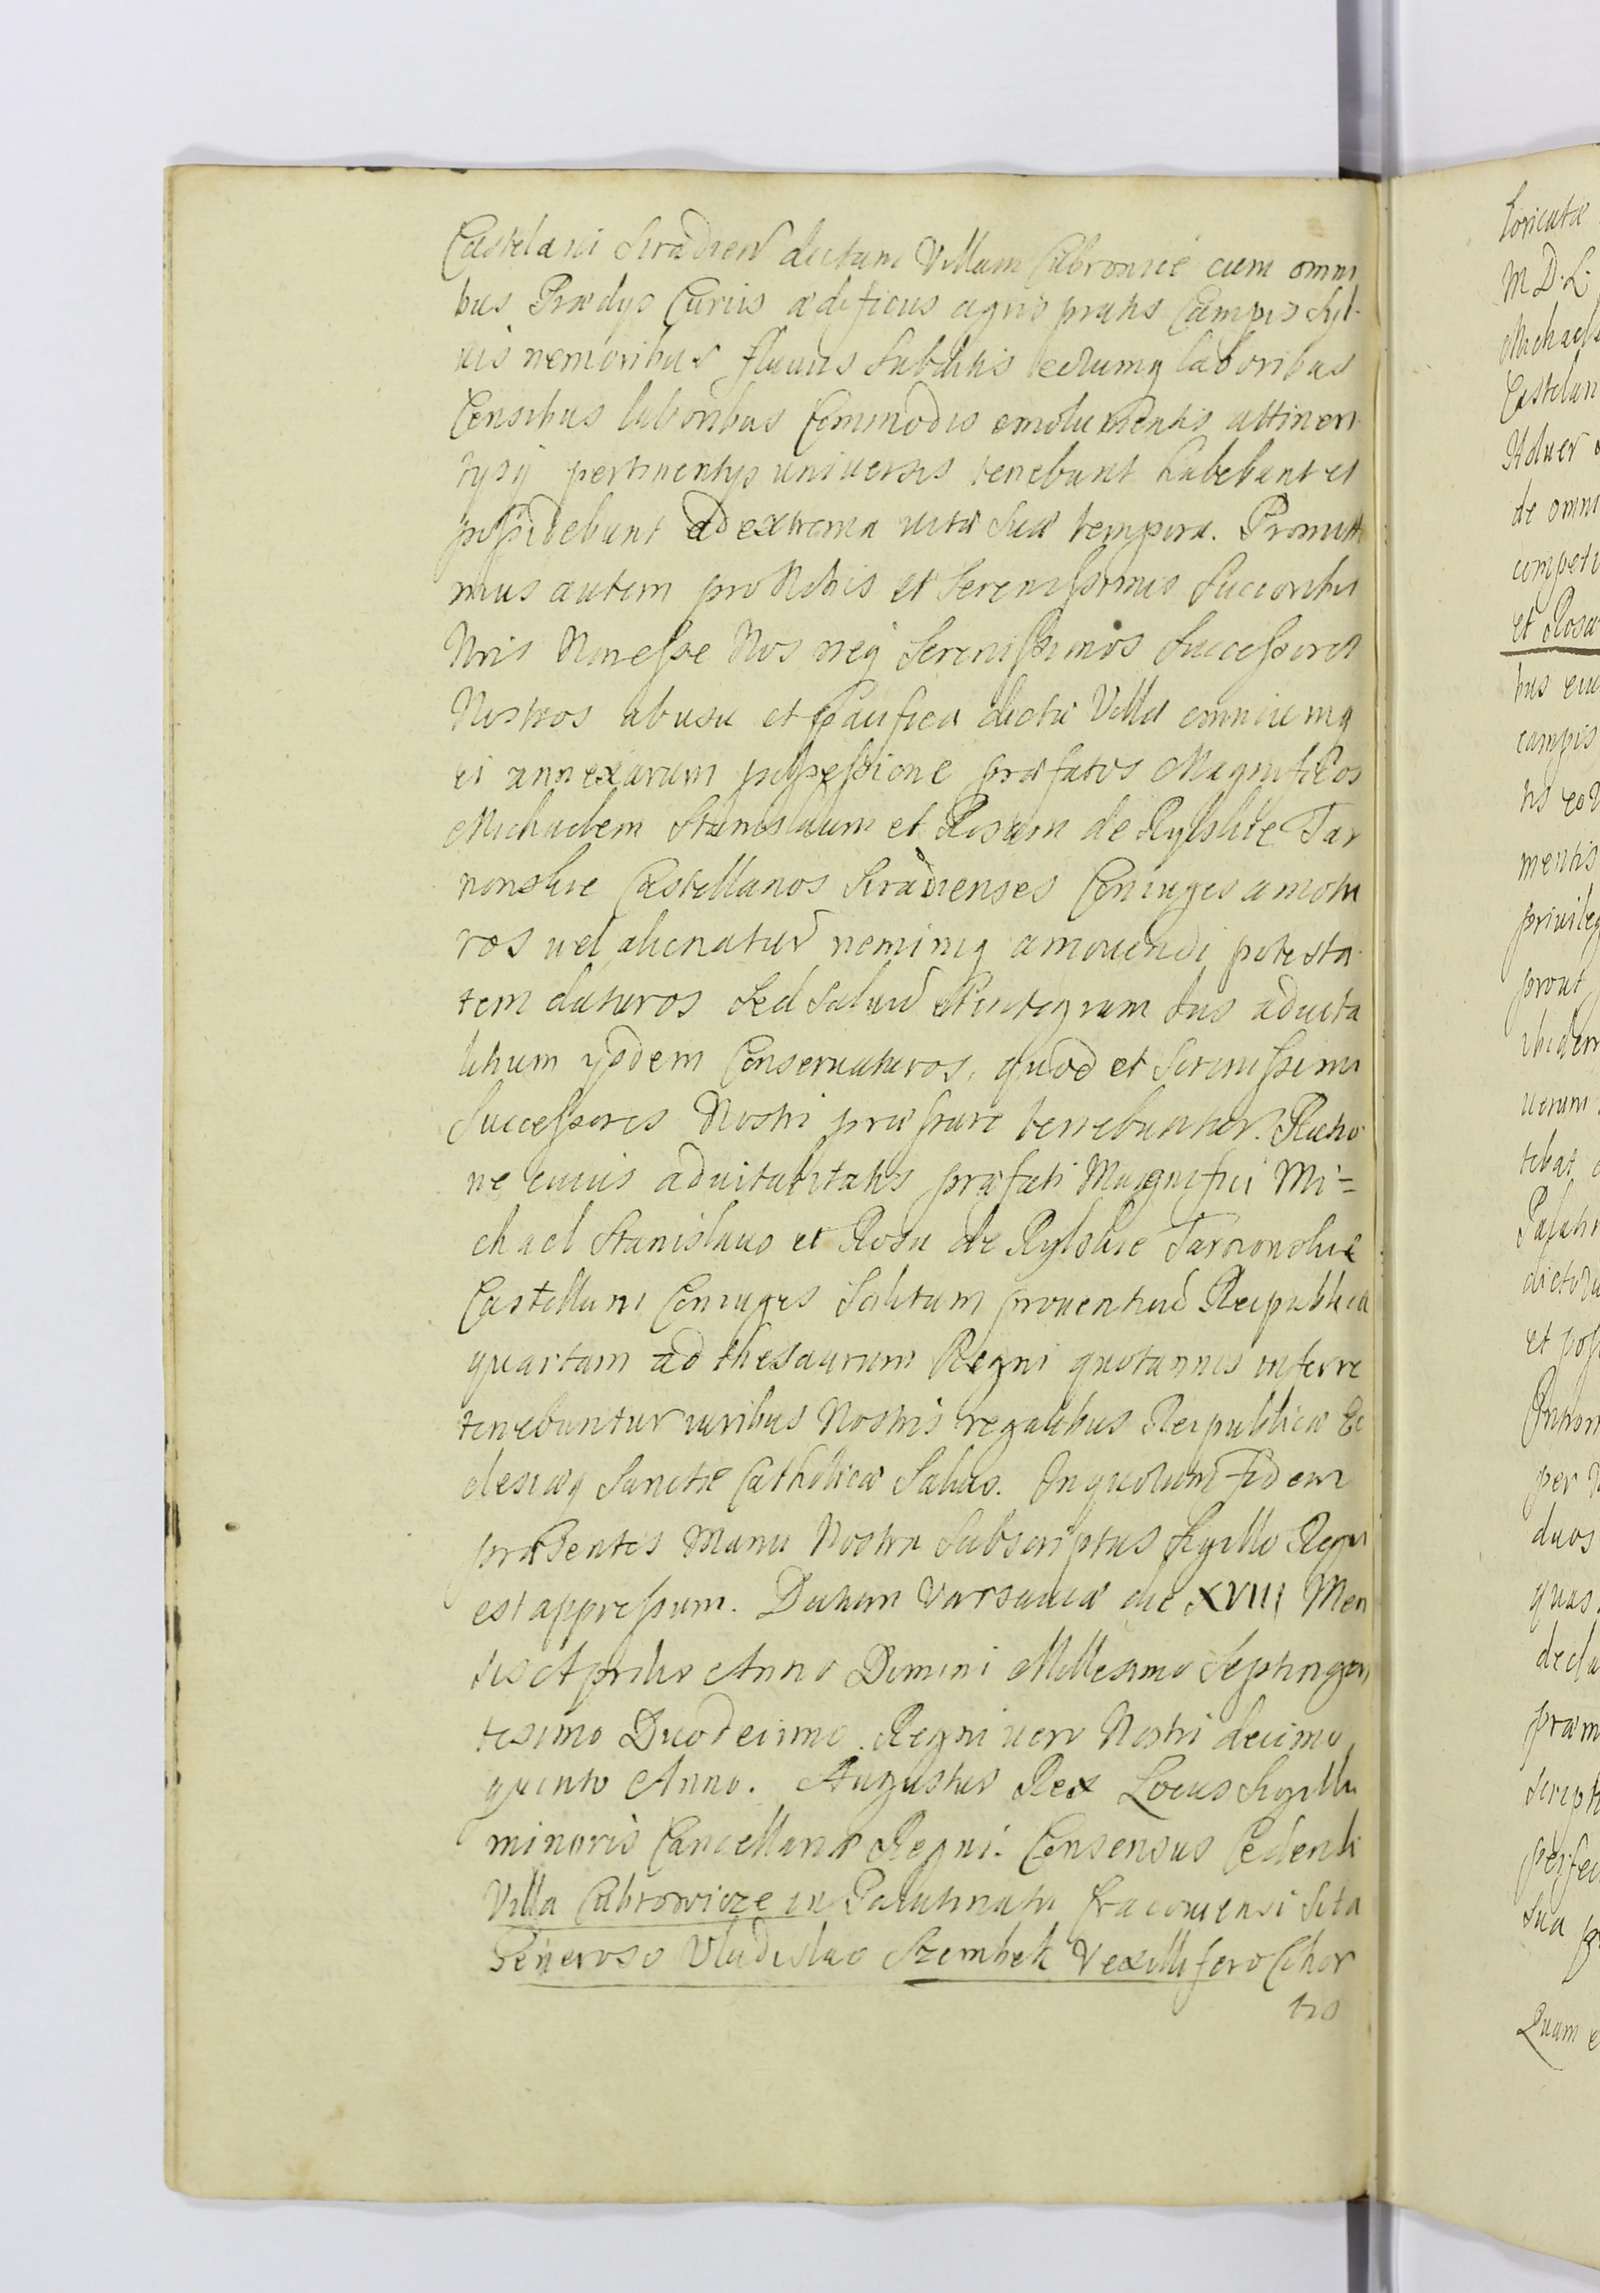 Castelani Siradien dictam Villam Cabrowice cum omni
bus Prædys Curiis ædificiis agris pratis Campis Syl-
vis nemoribus fluuiis Subditis eorumq laboribus
Censibus laboribus Commodis emolumentis attinen
tysq pertinentys uniuersis tenebunt habebunt et
possidebunt ad extrema uitæ Suæ tempora. Promitti
mus autem pro Nobis et Serenissimis Succoribus
Nris Non esse Nos neq Serenissimos Successores
Nostros ab usu et pacifica dictæ Villæ omniumq
ei annexarum possessione præfatos Magnificos
Michaelem Stanislaum et Rosam de Rylskie Tar
nowskie Castellanos Siradienses Coniuges amotu
ros uel alienatur neminiq amouendi potesta-
tem daturos Sed Saluu et integrum Ius aduita
litium ysdem Conseruaturos, quod et Serenissimi
Successores Nostri præstare tenebuntur. Ratio
ne cuius aduitalitatis præfati Magnifici Mi=
chael Stanislaus et Rosa de Rylskie Tarnowskie
Castellani Coniuges Solitam prouentuu Reipublicæ
quartam ad thesaurum Regni quotannis inferre
tenebuntur iuribus Nostris regalibus Reipublicæ Ec
clesiæq Sanctæ Catholicæ Saluis. In quorum fidem
præsentes Manu Nostra Subscriptas Sigillo Regni
est appressum. Datum Varsauiæ die XVIII Men
sis Aprilis Anno Domini Millesimo Septingen
tesimo Duodecimo. Regni uero Nostri decimo
quinto Anno. Augustus Rex Locus Sigilli
minoris Cancellariæ Regni. Consensus Cedendi
Villa Cabrowicze in Palatinatu Cracouiensi Sita
Generoso Vladislao Szembek Vexillifero Cohor
tis
Loricatæ
M D. L.
Michael
Castelan
de omni
competi
et Rosa
bus
campis
mentis
priuileg
prout
ibidem
tebat
et poss
per N
duos
quas
decla
præm
script
perfec
Sua
Quam e